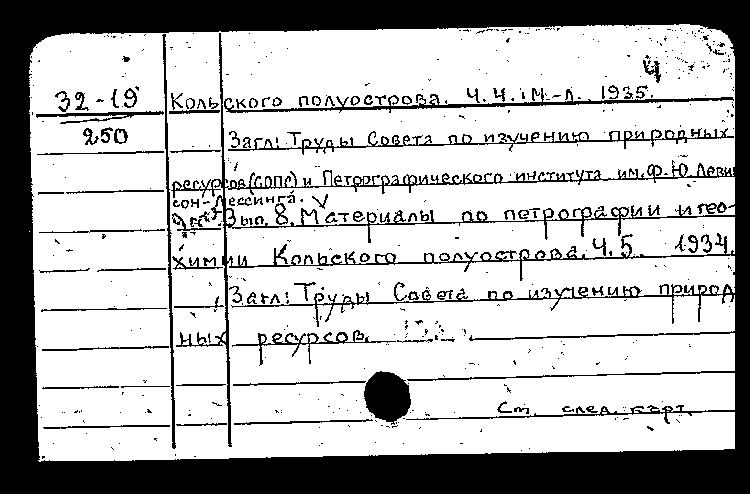 4
32-19 Кольского полуострова. Ч.4. М.-Л. 1935.
250 Загл: Труды Совета по изучению природных
ресурсов (СОПС) и Петрографического института им. Ф.Ю. Левин
сон-Лессинга. V
Вып. 8. Материалы по петрографии и гео-
химии Кольского полуострова. Ч.5. 1934.
Загл: Труды Совета по изучению природ
ных ресурсов.
См. след. карт.